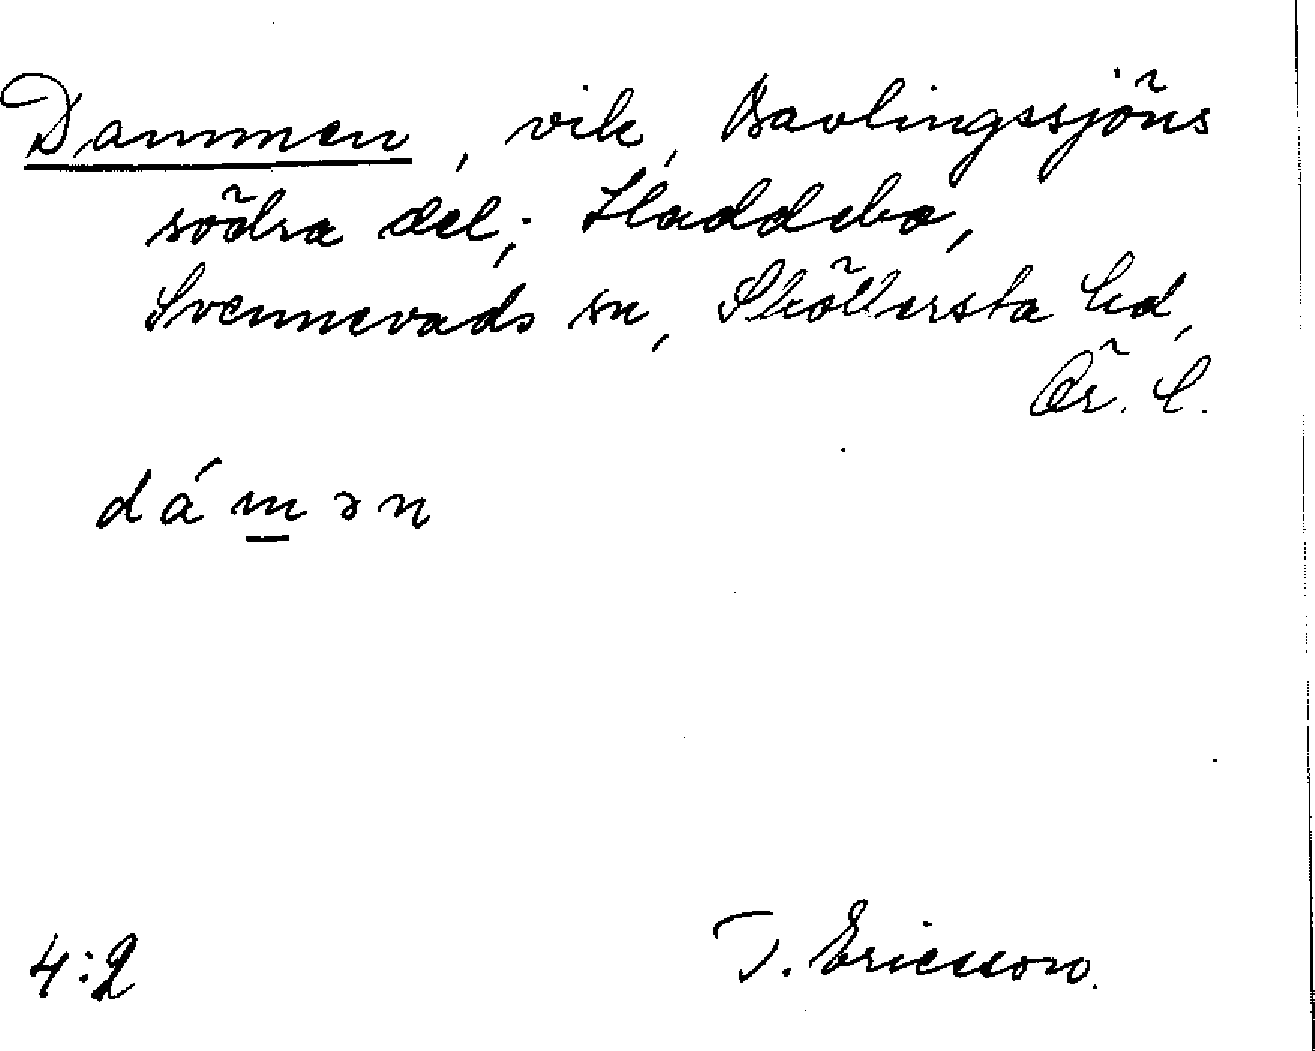 Dammen, vik, Bavlingssjöns
södra del; Haddebo,
Svennevads sn, Sköllersta hd,
Ör. l.
dám̲ən
4:2
T. Ericsson.